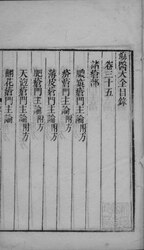 瘍醫大全目錄
卷三十五
諸瘡部
膿窠瘡門主論附方
疥瘡門主論附方
薄皮瘡門主論附方
肥瘡門主論附方
天泡瘡門主論附方
翻花瘡門主論附方